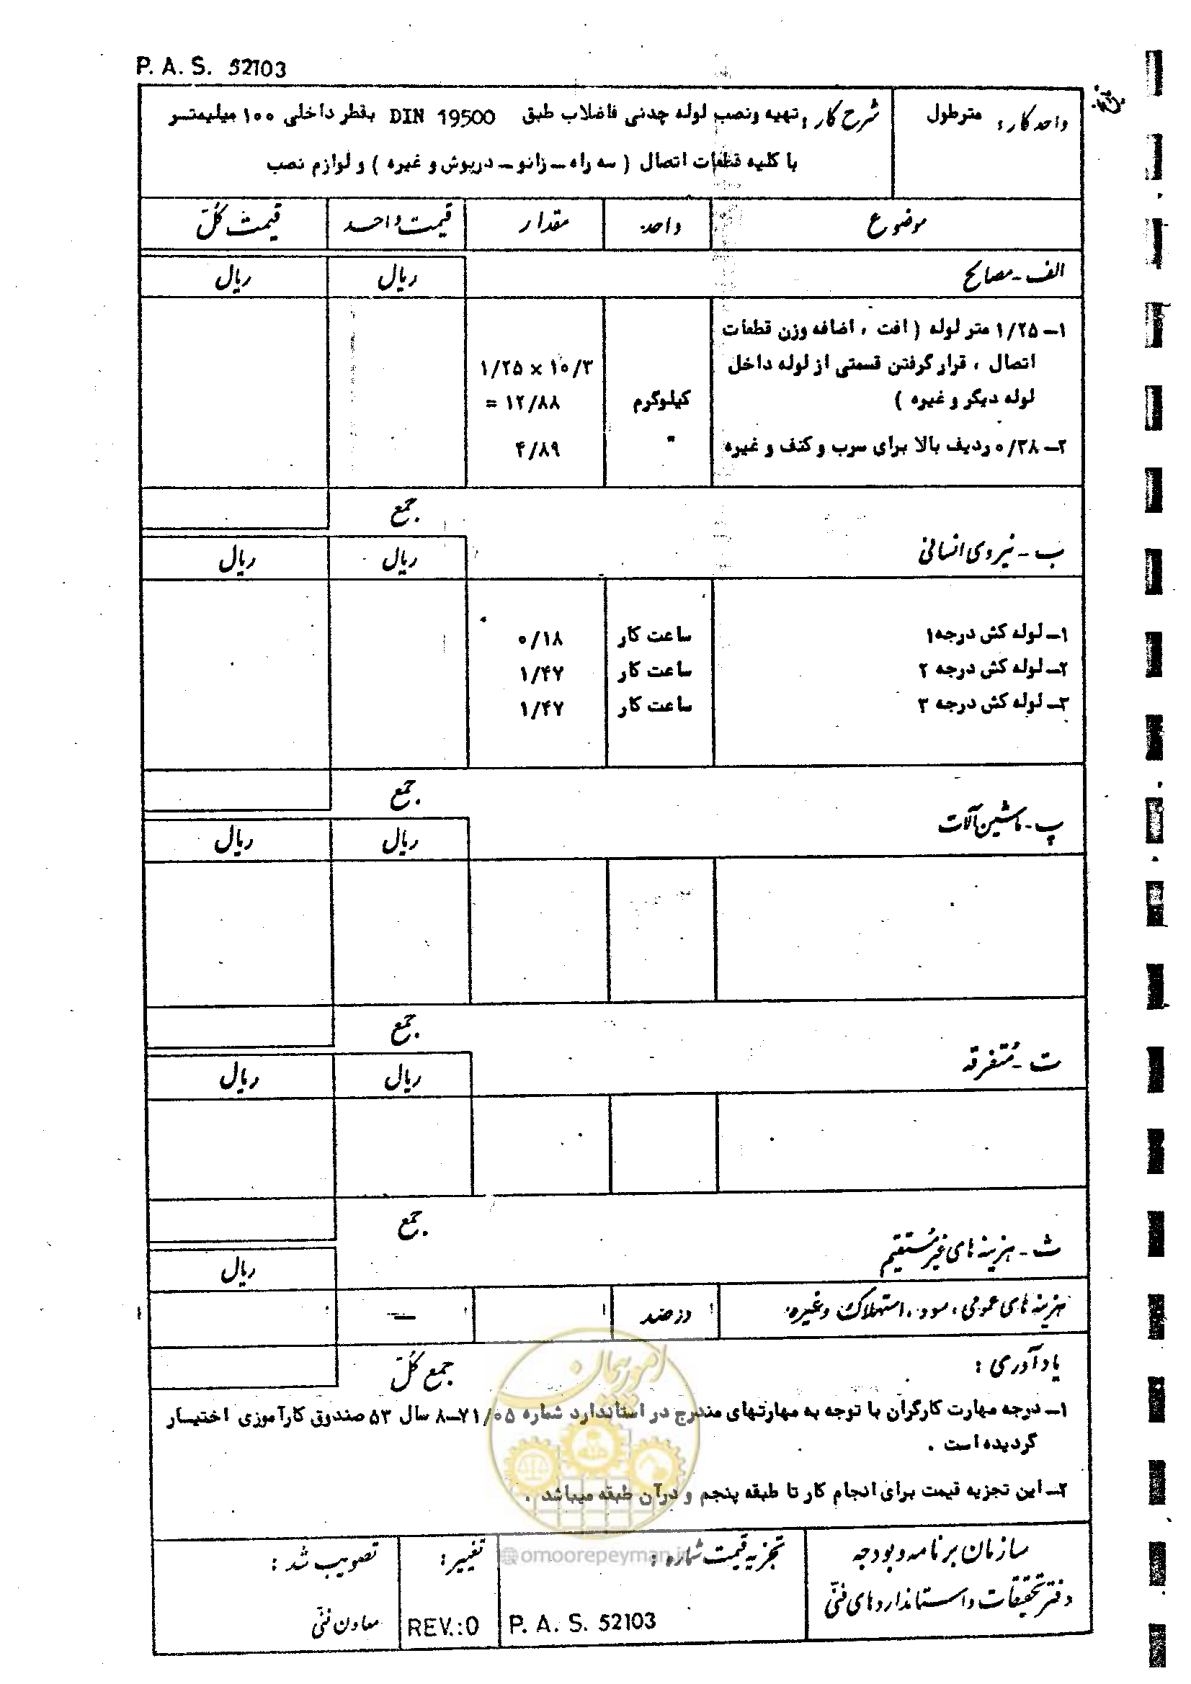 P. A. S. 52103
واحد کار: مترطول
شرح کار: تهیه ونصب لوله چدنی فاضلاب طبق DIN 19500 بقطر داخلی ۱۰۰ میلیمتـر
با کلیه قطعات اتصال ( سه راه ـ زانو ـ درپوش و غیره ) و لوازم نصب
موضوع واحد مقدار قیمت واحد قیمت کل
الف ـ مصالح ریال ریال
۱ـ ۱/۲۵ متر لوله ( افت ، اضافه وزن قطعات
اتصال ، قرار گرفتن قسمتی از لوله داخل ۱/۲۵ × ۱۰/۳
لوله دیگر و غیره ) کیلوگرم = ۱۲/۸۸
۲ـ ۰/۳۸ ردیف بالا برای سرب و کنف و غیره " ۴/۸۹
جمع
ب ـ نیروی انسانی ریال ریال
۱ـ لوله کش درجه ۱ ساعت کار ۰/۱۸
۲ـ لوله کش درجه ۲ ساعت کار ۱/۴۷
۳ـ لوله کش درجه ۳ ساعت کار ۱/۴۷
جمع
پ ـ ماشین آلات ریال ریال
جمع
ت ـ متفرقه ریال ریال
جمع
ث ـ هزینه های غیر مستقیم ریال
هزینه های عمومی ، سود ، استهلاک وغیره درصد —
یادآوری : جمع کل
۱ـ درجه مهارت کارگران با توجه به مهارتهای مندرج در استاندارد شماره ۷۱/۰۵ـ۸ سال ۵۳ صندوق کارآموزی اختیـار
گردیده است .
۲ـ این تجزیه قیمت برای انجام کار تا طبقه پنجم و درآن طبقه میباشد .
امور پیمان
@omoorepeyman.ir
سازمان برنامه و بودجه تجزیه قیمت شماره : تغییر : تصویب شد :
دفتر تحقیقات و استانداردهای فنی P. A. S. 52103 REV.:0 معاون فنی